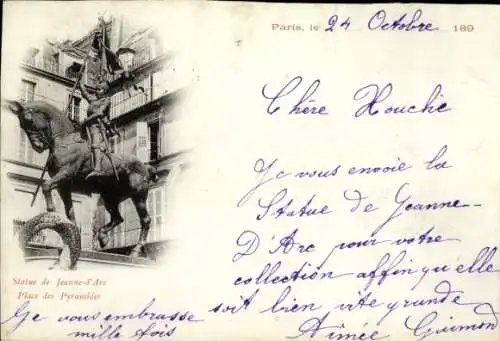 Paris, le 24 Octobre 189
Chère Houche
Je vous envoie la
Statue de Jeanne-
D'Arc pour votre
collection affin qu'elle
soit bien vite grande
Aimée Guimond
Statue de Jeanne-d'Arc
Place des Pyramides
Je vous embrasse
mille fois